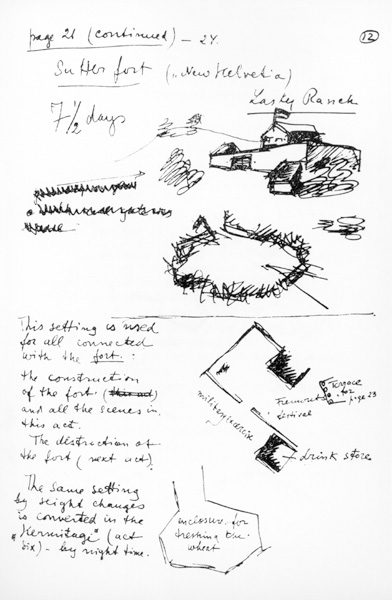 page 21 (continued) – 24.
12
Sutter fort („New Helvetia)
7½ days
Lasky Ranch
This setting is used
for all connected
with the fort:
the construction
of the fort
and all the scenes in
this act.
The distruction of
the fort (next act)
The same setting
by slight changes
is converted in the
„Hermitage" (act
six) – by night time.
Terrace
for
page 23
Fremont
festival
drink store
inclosur. for
treshing the
wheat